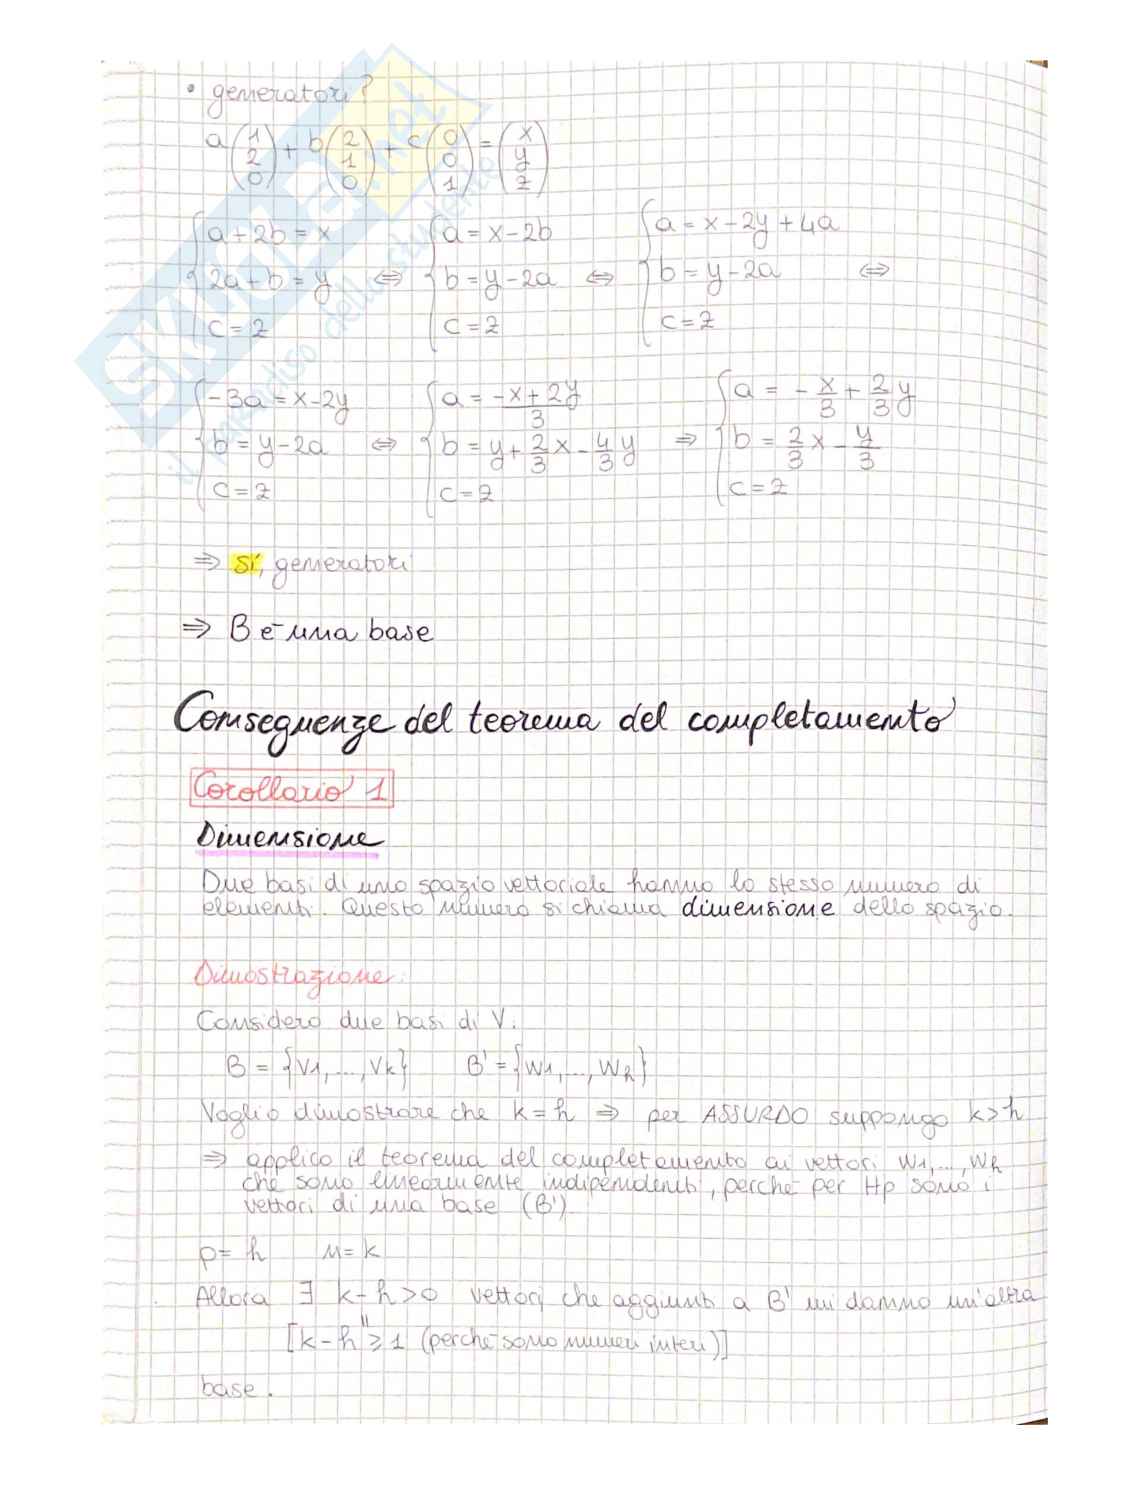 • generatori?
a(1 2 0) + b(2 1 0) + c(0 0 1) = (x y z)
{a+2b=x {a=x-2b {a=x-2y+4a
{2a+b=y ⇔ {b=y-2a ⇔ {b=y-2a ⇔
{c=z {c=z {c=z
{-3a=x-2y {a=(-x+2y)/3 {a=-x/3+2/3y
{b=y-2a ⇔ {b=y+2/3x-4/3y ⇒ {b=2/3x-y/3
{c=z {c=z {c=z
⇒ sí, generatori
⇒ B è una base
Conseguenze del teorema del completamento
Corollario 1
Dimensione
Due basi di uno spazio vettoriale hanno lo stesso numero di
elementi. Questo numero si chiama dimensione dello spazio.
Dimostrazione:
Considero due basi di V:
B = {v1,...,vk} B' = {w1,...,wh}
Voglio dimostrare che k=h ⇒ per ASSURDO suppongo k>h
⇒ applico il teorema del completamento ai vettori w1,...,wh
che sono linearmente indipendenti, perché per Hp sono i
vettori di una base (B')
p=h n=k
Allora ∃ k-h>0 vettori che aggiunti a B' mi danno un'altra
[k-h ≥ 1 (perché sono numeri interi)]
base.
SKUOLA.net
il paradiso dello studente